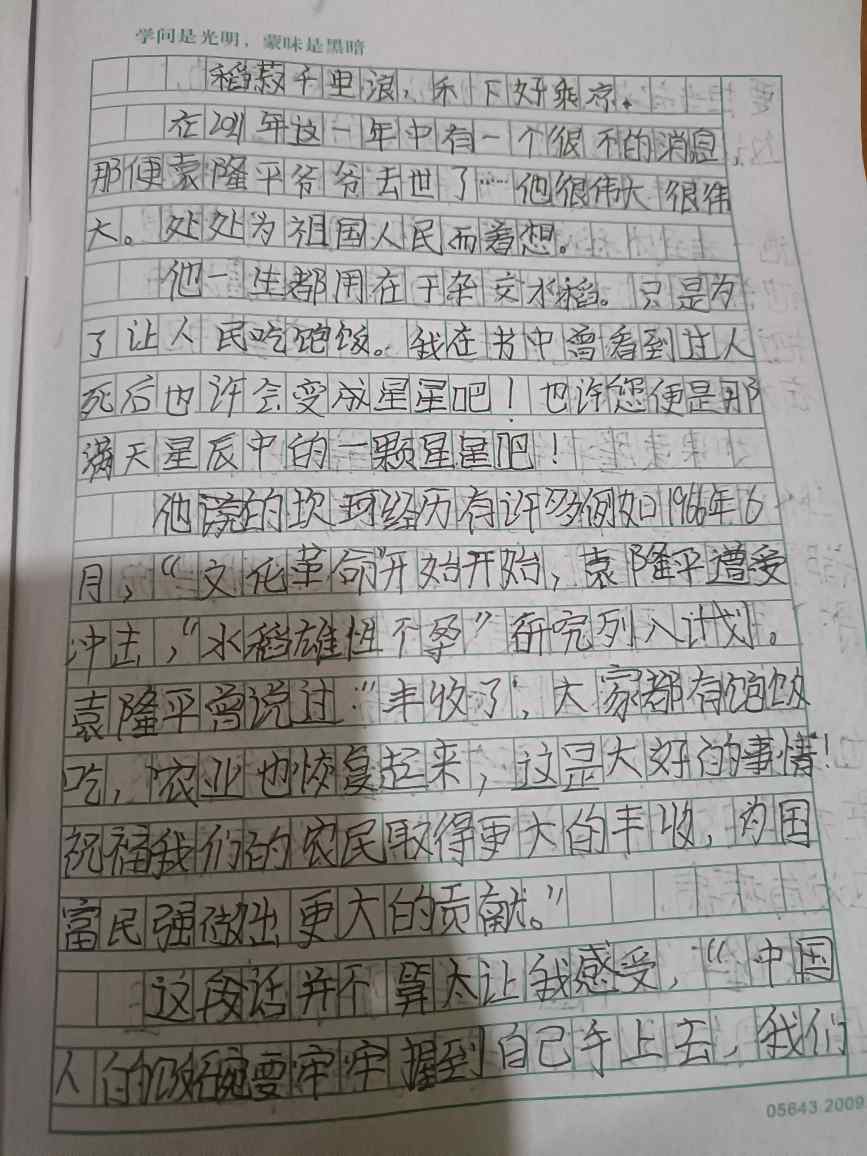 学问是光明，蒙昧是黑暗
稻菽千里浪，禾下好乘凉。
在2021年这一年中有一个很不的消息，
那便袁隆平爷爷去世了……他很伟大很伟
大。处处为祖国人民而着想。
他一生都用在于杂交水稻。只是为
了让人民吃饱饭。我在书中曾看到过人
死后也许会变成星星吧！也许您便是那
满天星辰中的一颗星星吧！
他的坎坷经历有许多例如1966年6
月，“文化革命”开始开始，袁隆平遭受
冲击，“水稻雄性不孕”研究列入计划。
袁隆平曾说过：“丰收了，大家都有饱饭
吃，农业也恢复起来，这是大好的事情！
祝福我们的农民取得更大的丰收，为国
富民强做出更大的贡献。”
这段话并不算太让我感受，“中国
人的饭碗要牢牢握到自己手上去，我们
05643.2009